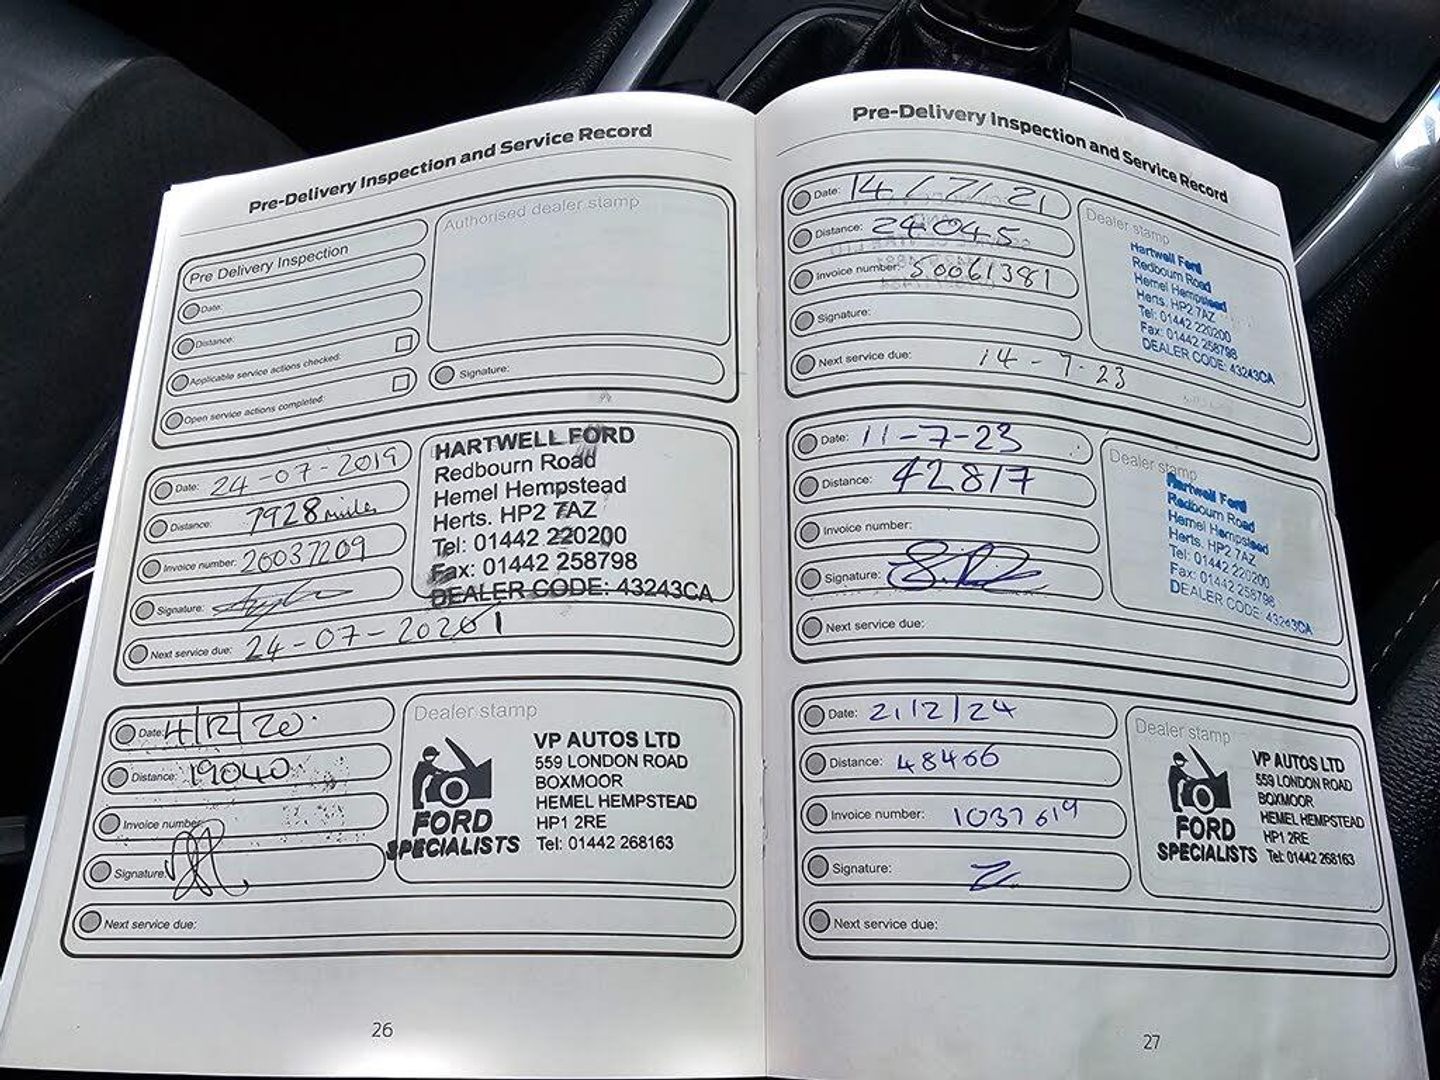 Pre-Delivery Inspection and Service Record
Pre Delivery Inspection
Date:
Distance:
Applicable service actions checked:
Open service actions completed:
Authorised dealer stamp
Signature:
Date: 24-07-2019
Distance: 7928 miles
Invoice number: 20037209
Signature:
Next service due: 24-07-2021
HARTWELL FORD
Redbourn Road
Hemel Hempstead
Herts. HP2 7AZ
Tel: 01442 220200
Fax: 01442 258798
DEALER CODE: 43243CA
Date: 4/12/20
Distance: 19040
Invoice number:
Signature:
Next service due:
Dealer stamp
FORD
SPECIALISTS
VP AUTOS LTD
559 LONDON ROAD
BOXMOOR
HEMEL HEMPSTEAD
HP1 2RE
Tel: 01442 268163
26
Pre-Delivery Inspection and Service Record
Date: 14/7/21
Distance: 24045
Invoice number: 50061381
Signature:
Next service due: 14-7-23
Dealer stamp
Hartwell Ford
Redbourn Road
Hemel Hempstead
Herts. HP2 7AZ
Tel: 01442 220200
Fax: 01442 258798
DEALER CODE: 43243CA
Date: 11-7-23
Distance: 42817
Invoice number:
Signature:
Next service due:
Dealer stamp
Hartwell Ford
Redbourn Road
Hemel Hempstead
Herts. HP2 7AZ
Tel: 01442 220200
Fax: 01442 258798
DEALER CODE: 43243CA
Date: 2/12/24
Distance: 48466
Invoice number: 1037619
Signature:
Next service due:
Dealer stamp
FORD
SPECIALISTS
VP AUTOS LTD
559 LONDON ROAD
BOXMOOR
HEMEL HEMPSTEAD
HP1 2RE
Tel: 01442 268163
27